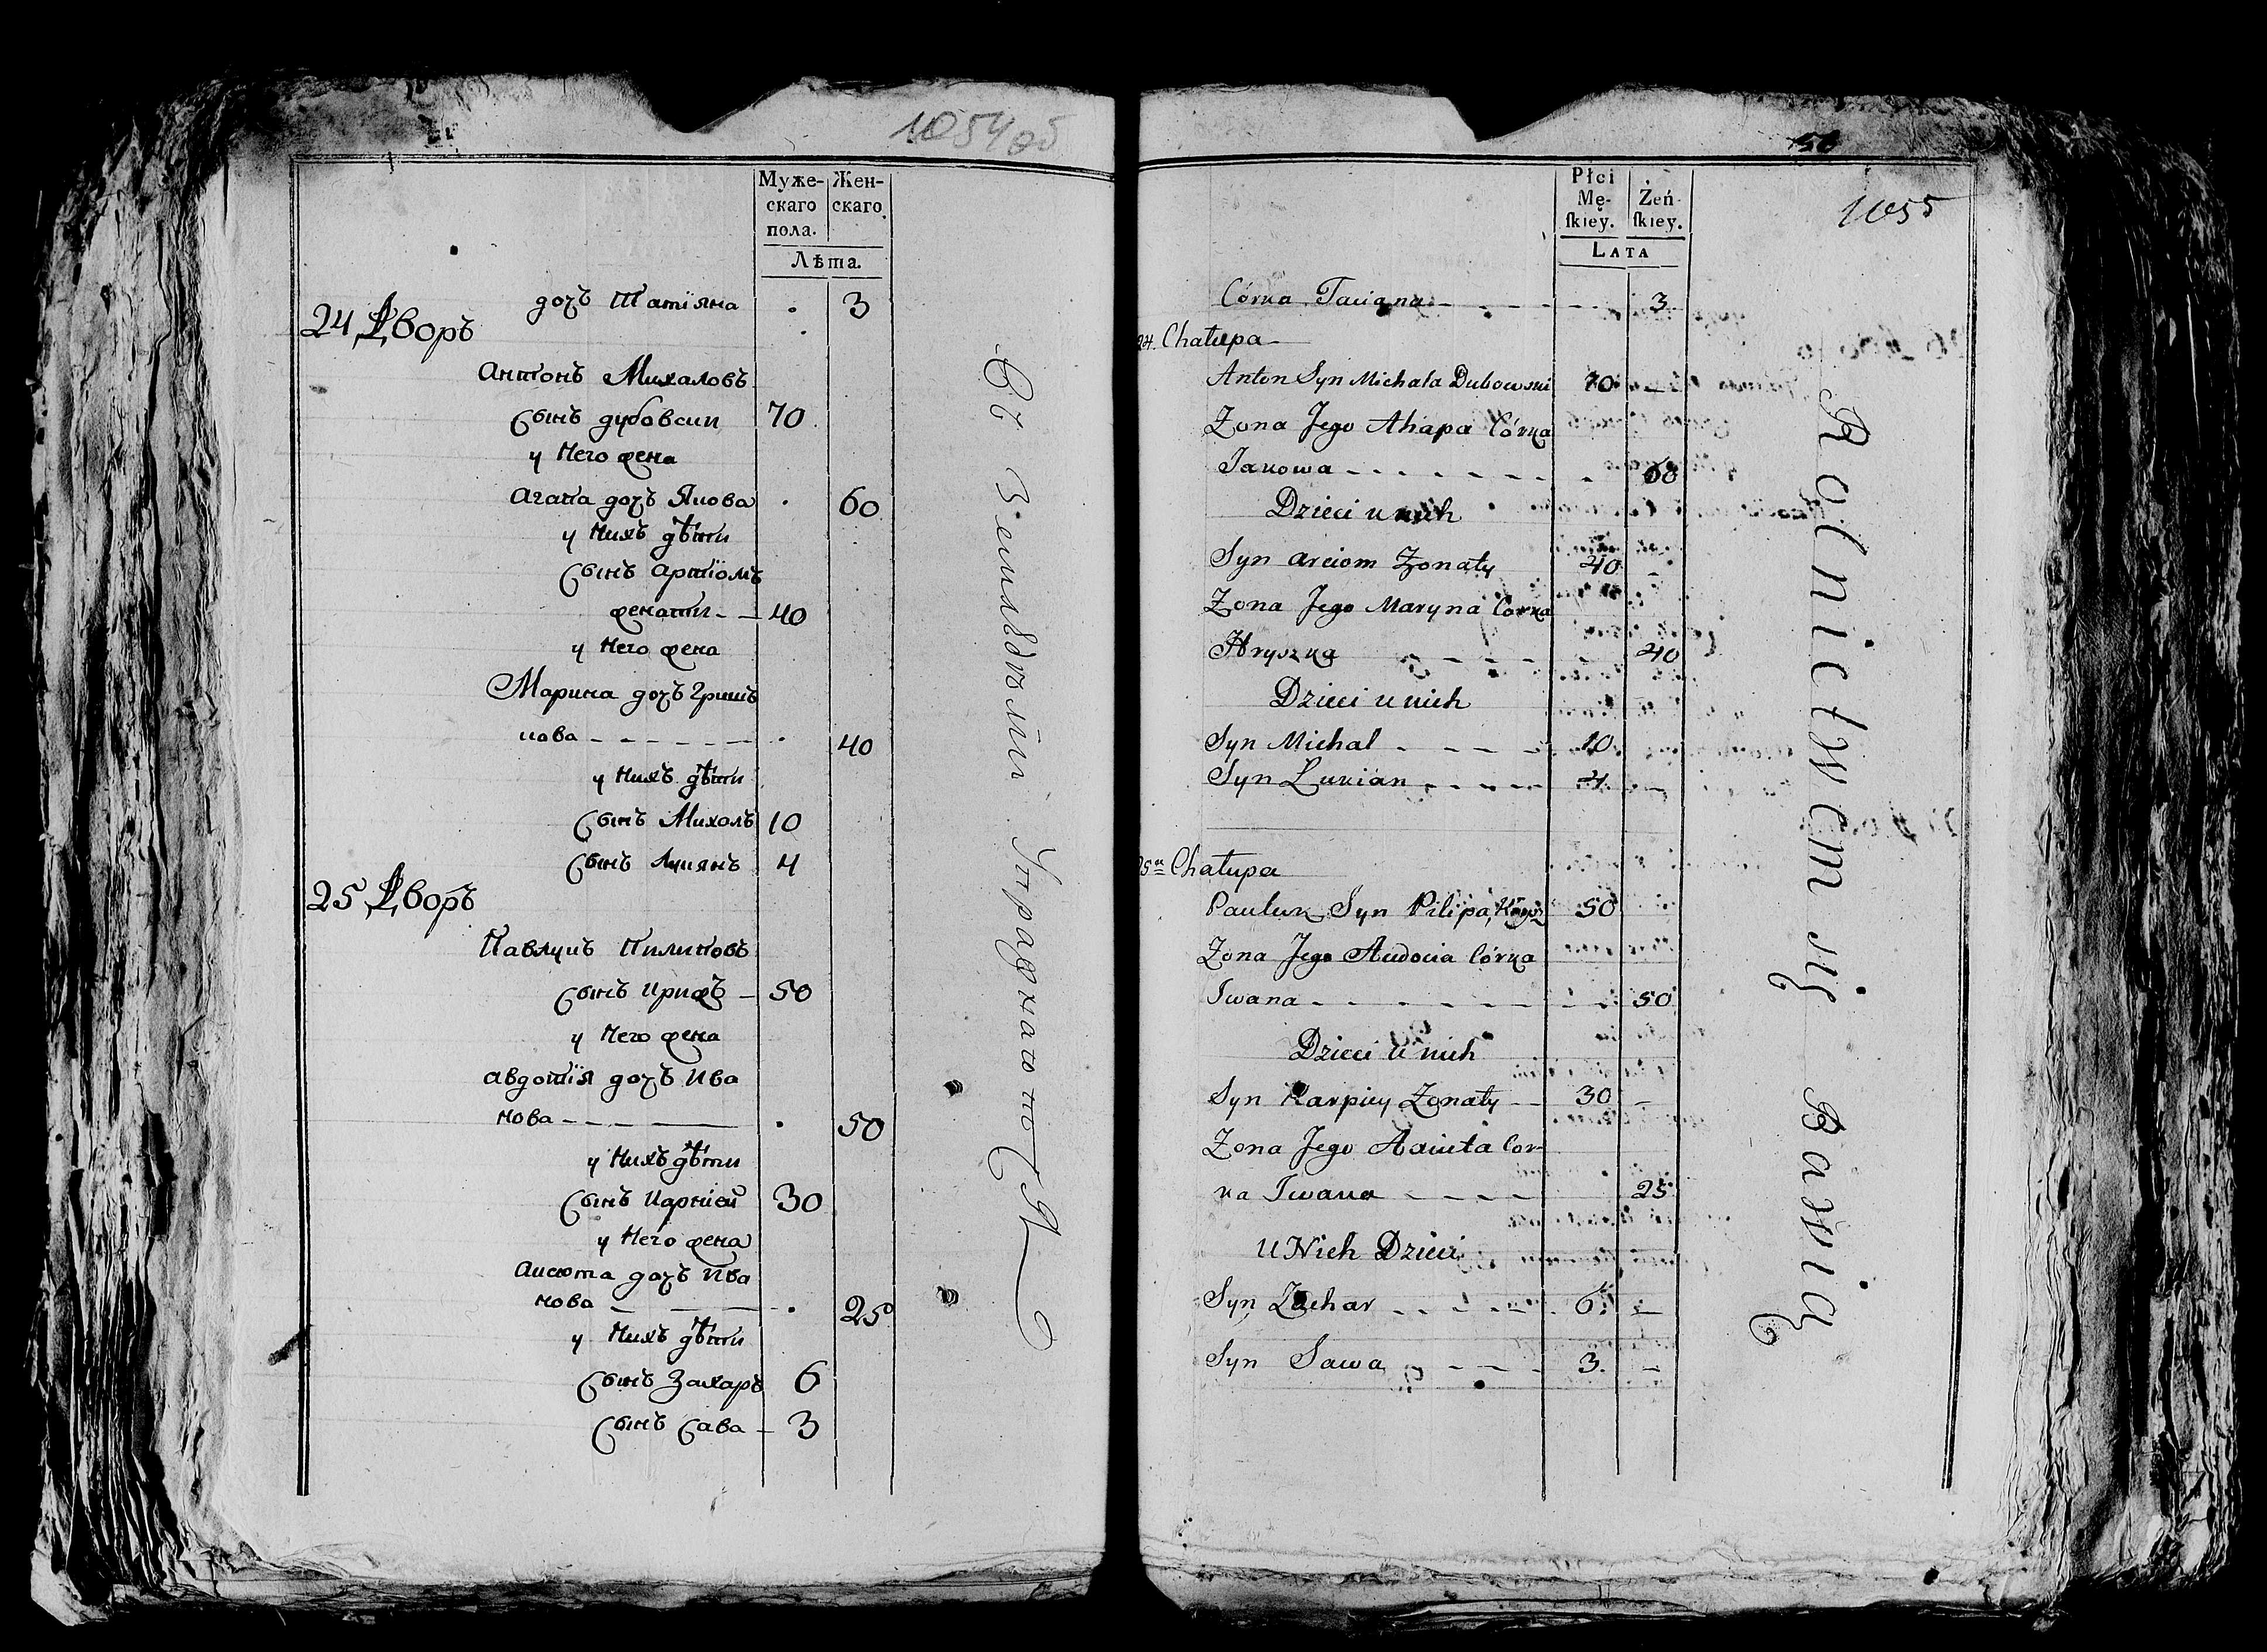 1054 об
Муже-
скаго
пола.
Жен-
скаго
Лѣта.
дочъ Татіяна 3
24 Дворъ
Антонъ Михаловъ
Сынъ дубовски 70
у Него жена
Агапа дочъ Якова 60
у Нихъ дѣти
Сынъ Артіомъ
женати 40
у Него жена
Марина дочъ Гришъ
кова 40
у Нихъ дѣти
Сынъ Михолъ 10
Сынъ Лукянъ 4
25 Дворъ
Павлукъ Пилиповъ
Сынъ 50
у Него жена
Авдотія дочъ Ива
нова 50
у Нихъ дѣти
Сынъ Карпіей 30
у Него жена
Аксюта дочъ Ива
нова 25
у Нихъ дѣти
Сынъ Захаръ 6
Сынъ Сава 3
50
1055
Płci
Mę-
skiey.
Żeń-
skiey.
Lata
Córka Taciana 3
24. Chałupa
Anton Syn Michała Dubowski 70
Zona Jego Ahapa Córka
Jakowa 60
Dzieci u nich
Syn Arciom Zonaty 40
Zona Jego Maryna Corka
Hryszka 40
Dzieci u nich
Syn Michal 10
Syn Lukian 4
25ta Chałupa
Pauluk Syn Pilipa 50
Zona Jego Audocia Córka
Iwana 50
Dzieci u nich
Syn Karpiey Zonaty 30
Zona Jego Axiuta Cor-
ka Iwana 25
U Nich Dzieci
Syn Zachar 6
Syn Sawa 3
Rolnictwem się Bawią